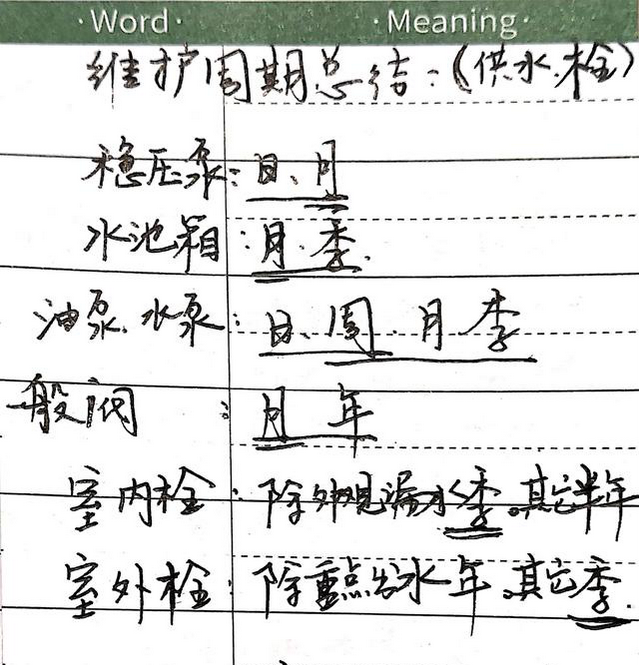 ·Word· ·Meaning·
维护周期总结:(供水、栓)
稳压泵:日、月
水池箱:月、季.
油泵、水泵:日、周、月季
般阀:月年
室内栓:除外观漏水季。其它半年
室外栓:除重点出水年.其它季.